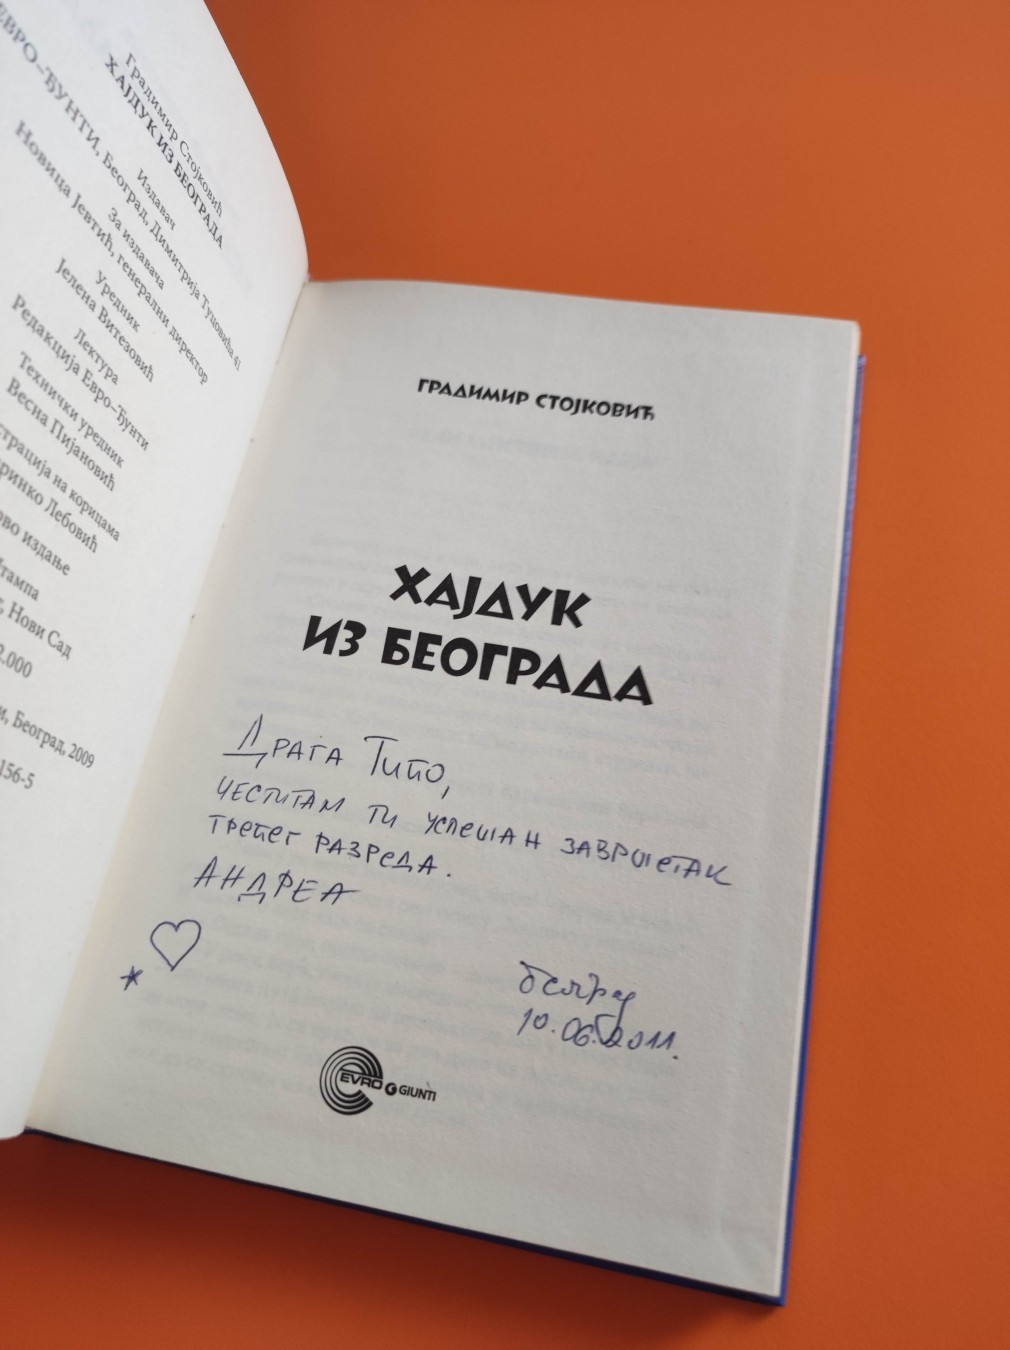 Градимир Стојковић
ХАЈДУК ИЗ БЕОГРАДА
Издавач
ЕВРО–ЂУНТИ, Београд, Димитрија Туцовића 41
За издавача
Новица Јевтић, генерални директор
Уредник
Јелена Витезовић
Лектура
Редакција Евро–Ђунти
Технички уредник
Весна Пијановић
на корицама
Лебовић
издање
Нови Сад
2.000
Београд, 2009
156-5
ГРАДИМИР СТОЈКОВИЋ
ХАЈДУК
ИЗ БЕОГРАДА
Драга Типо,
честитам ти успешан завршетак
трећег разреда.
Андреа
Београд
10.06.2011.
EVRO GIUNTI